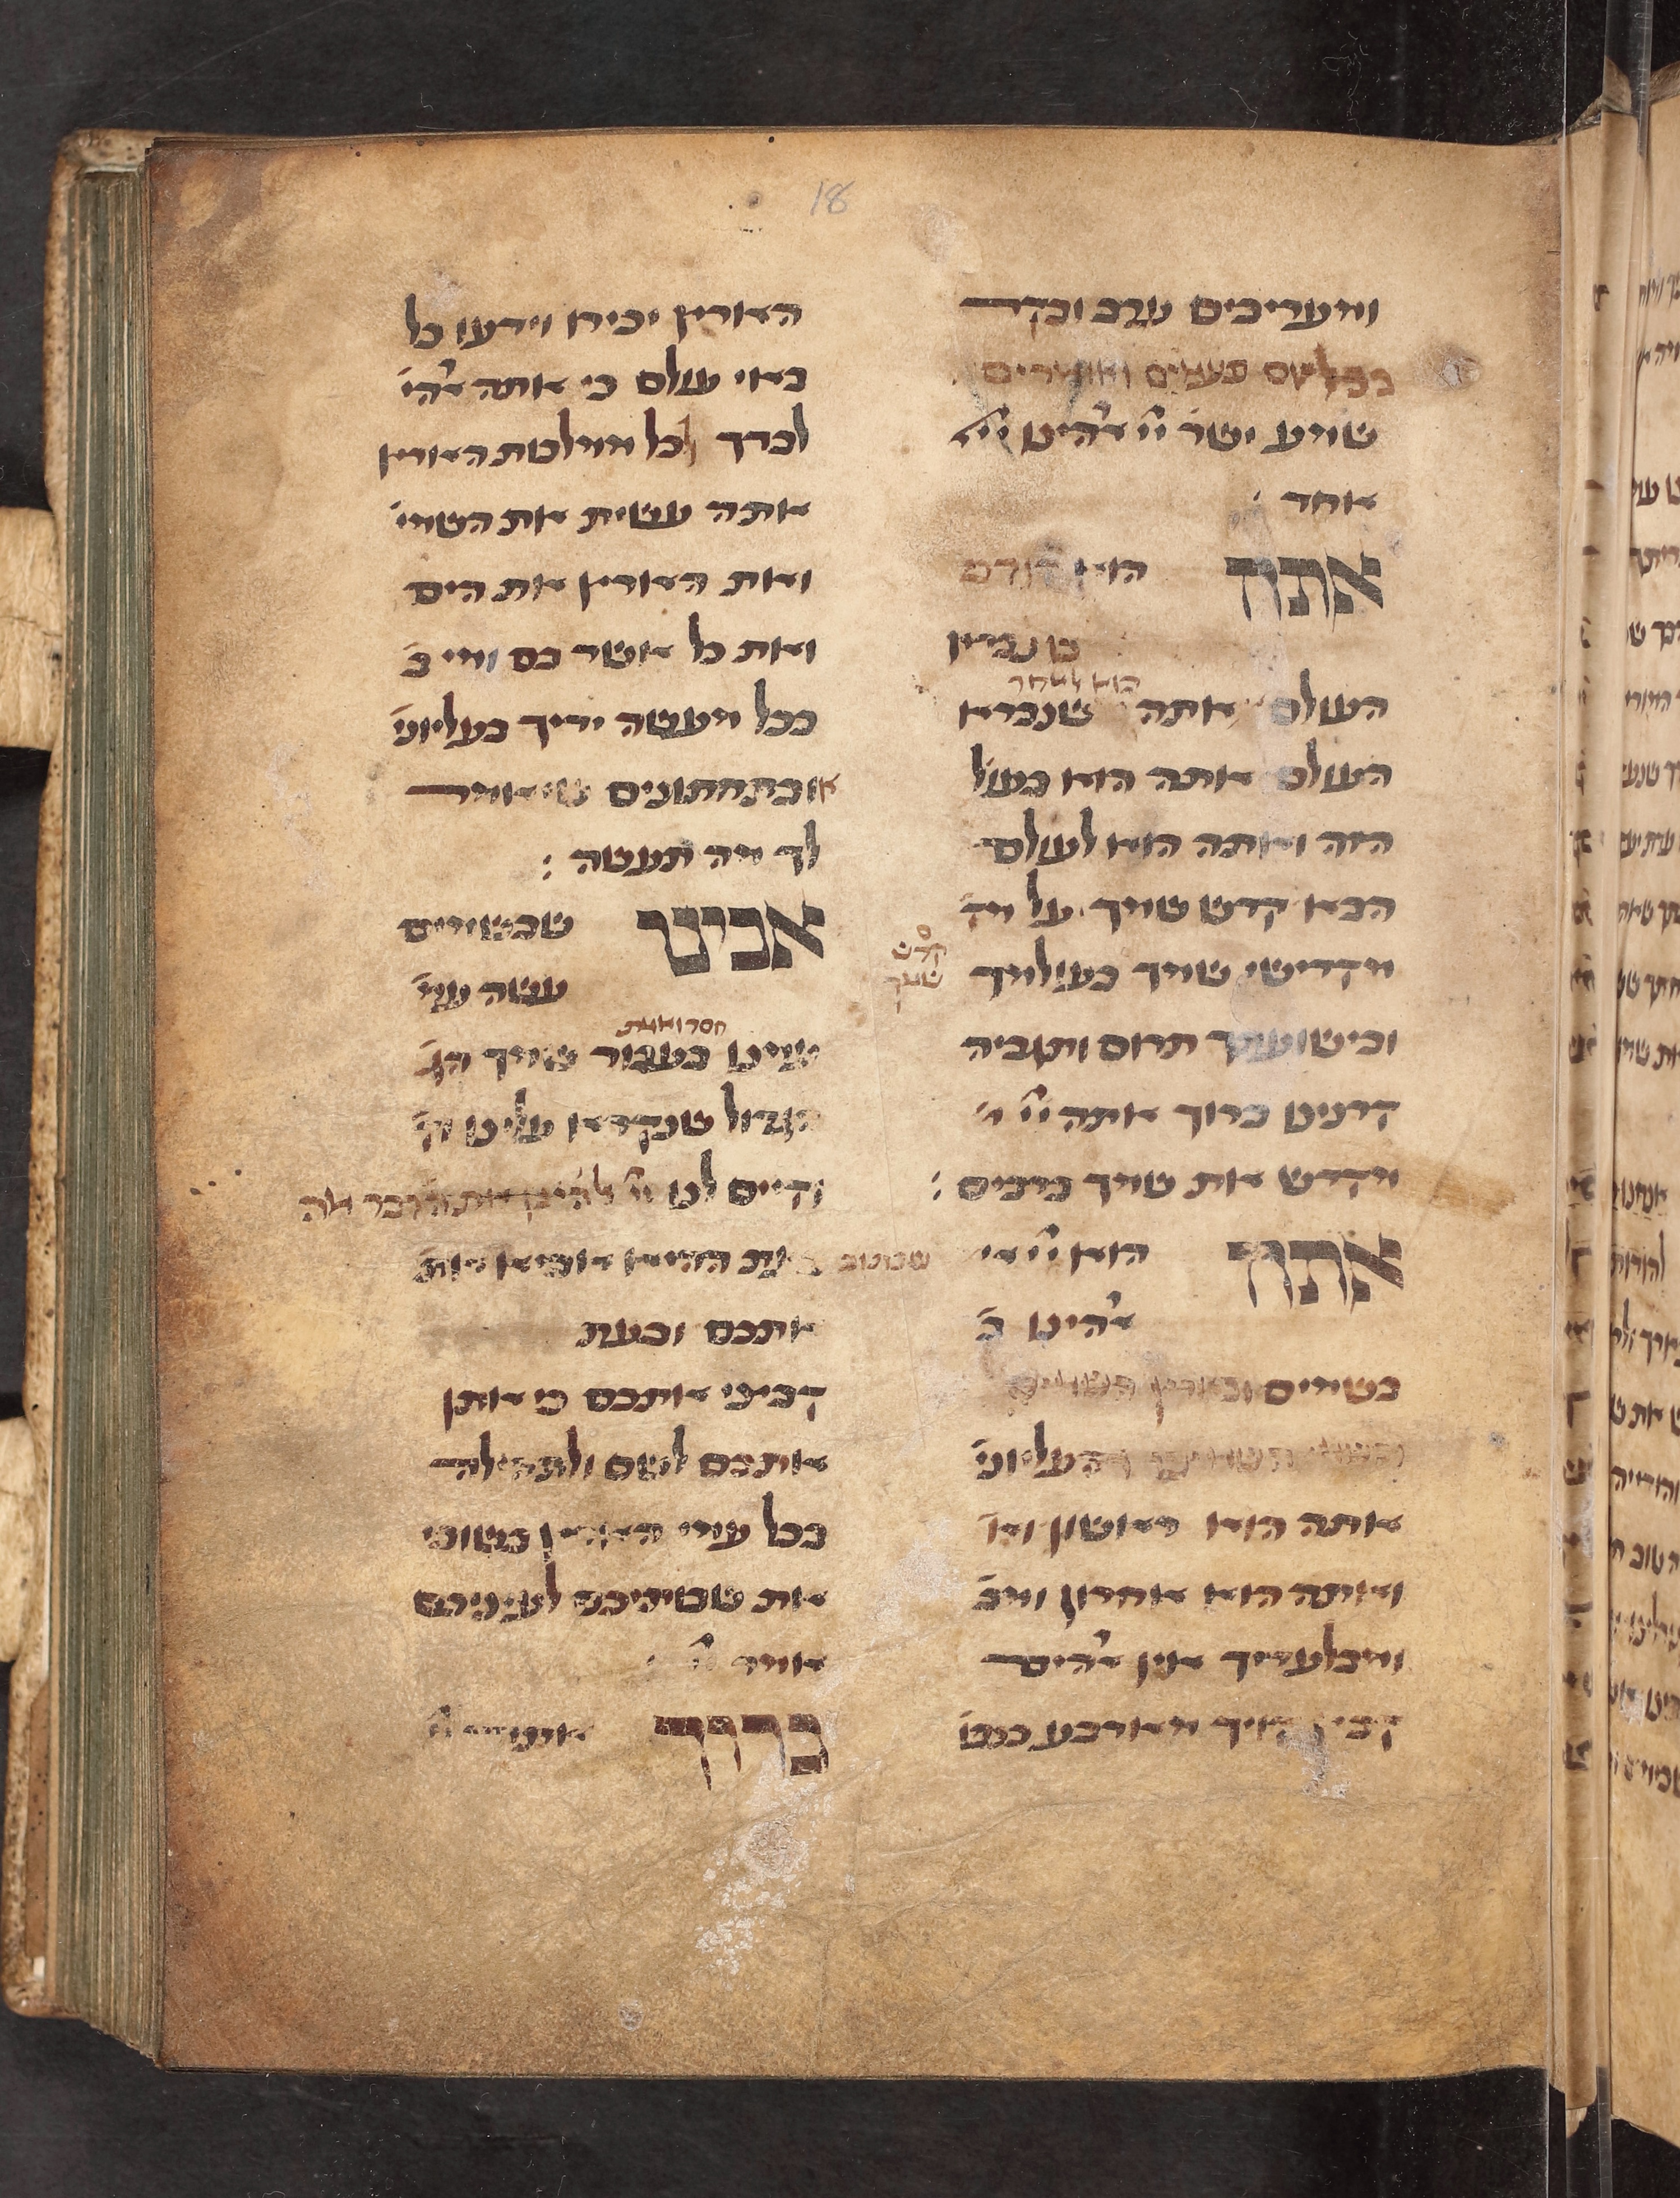 18
ומעריבים ערב ובקר
בכל יום פעמים ואומרים
שמע ישר׳ יי׳ א׳הינו יי׳
אחד :
אתה הוא קודם
שנברא
העולם אתה הוא לאחר שנברא
העולם אתה הוא בעול׳
הזה ואתה הוא לעולם
הבא קדש שמך על מק׳
קדש שמך
מקדישי שמך בעולמך
ובישועתך תרום ותגביה
קרנינו ברוך אתה יי׳
מקדש את שמך ברבים :
אתה הוא יי׳
א׳הינו ב׳
בשמים ובארץ
העליוני׳
אתה הוא ראשון
ואתה הוא אחרון ומב׳
ומבלעדיך אין א׳הים
קבץ קויך מארבע כנפו׳
הארץ יכירו וידעו כל
באי עולם כי אתה א׳הי׳
לבדך לכל ממלכות הארץ
אתה עשית את השמי׳
ואת הארץ את הים
ואת כל אשר בם ומי ב׳
בכל מעשה ידיך בעליוני׳
או בתחתונים שיאמר
לך מה תעשה :
אבינו שבשמים
עשה עמ׳
חסד ואמת
עמנו בעבור שמך הג׳
הגדול שנקרא עלינו
וקיים לנו יי׳ א׳הינו את הדבר
שכתוב בעת ההיא אביא
אתכם ובעת
קבצי אתכם כי אתן
אתכם לשם ולתהלה
בכל עמי הארץ בשובי
את שבותיכם לעיניכם
אמר יי׳
ברוך